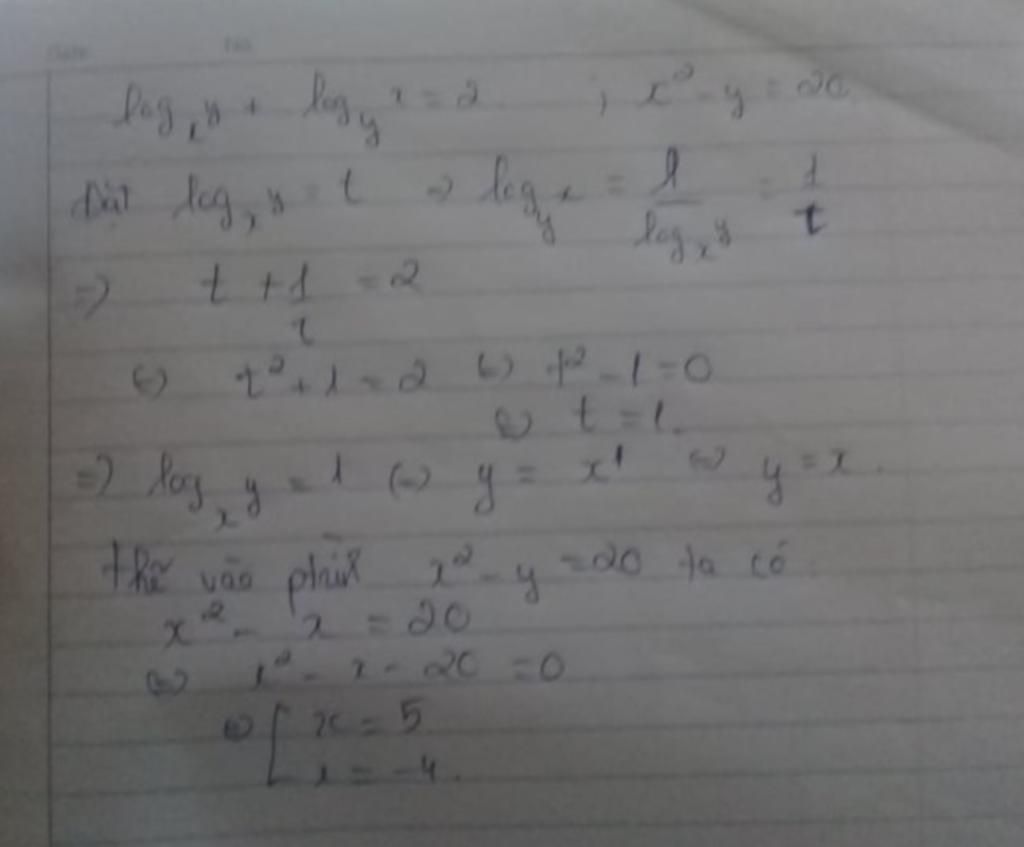 log_x y + log_y x = 2 ; x² - y = 20
Đặt log_x y = t => log_y x = 1/log_x y = 1/t
=> t + 1/t = 2
<=> t² + 1 = 2 <=> t² - 1 = 0
<=> t = 1.
=> log_x y = 1 <=> y = x¹ <=> y = x.
thế vào x² - y = 20 ta có
x² - x = 20
<=> x² - x - 20 = 0
<=> [ x = 5
x = -4.